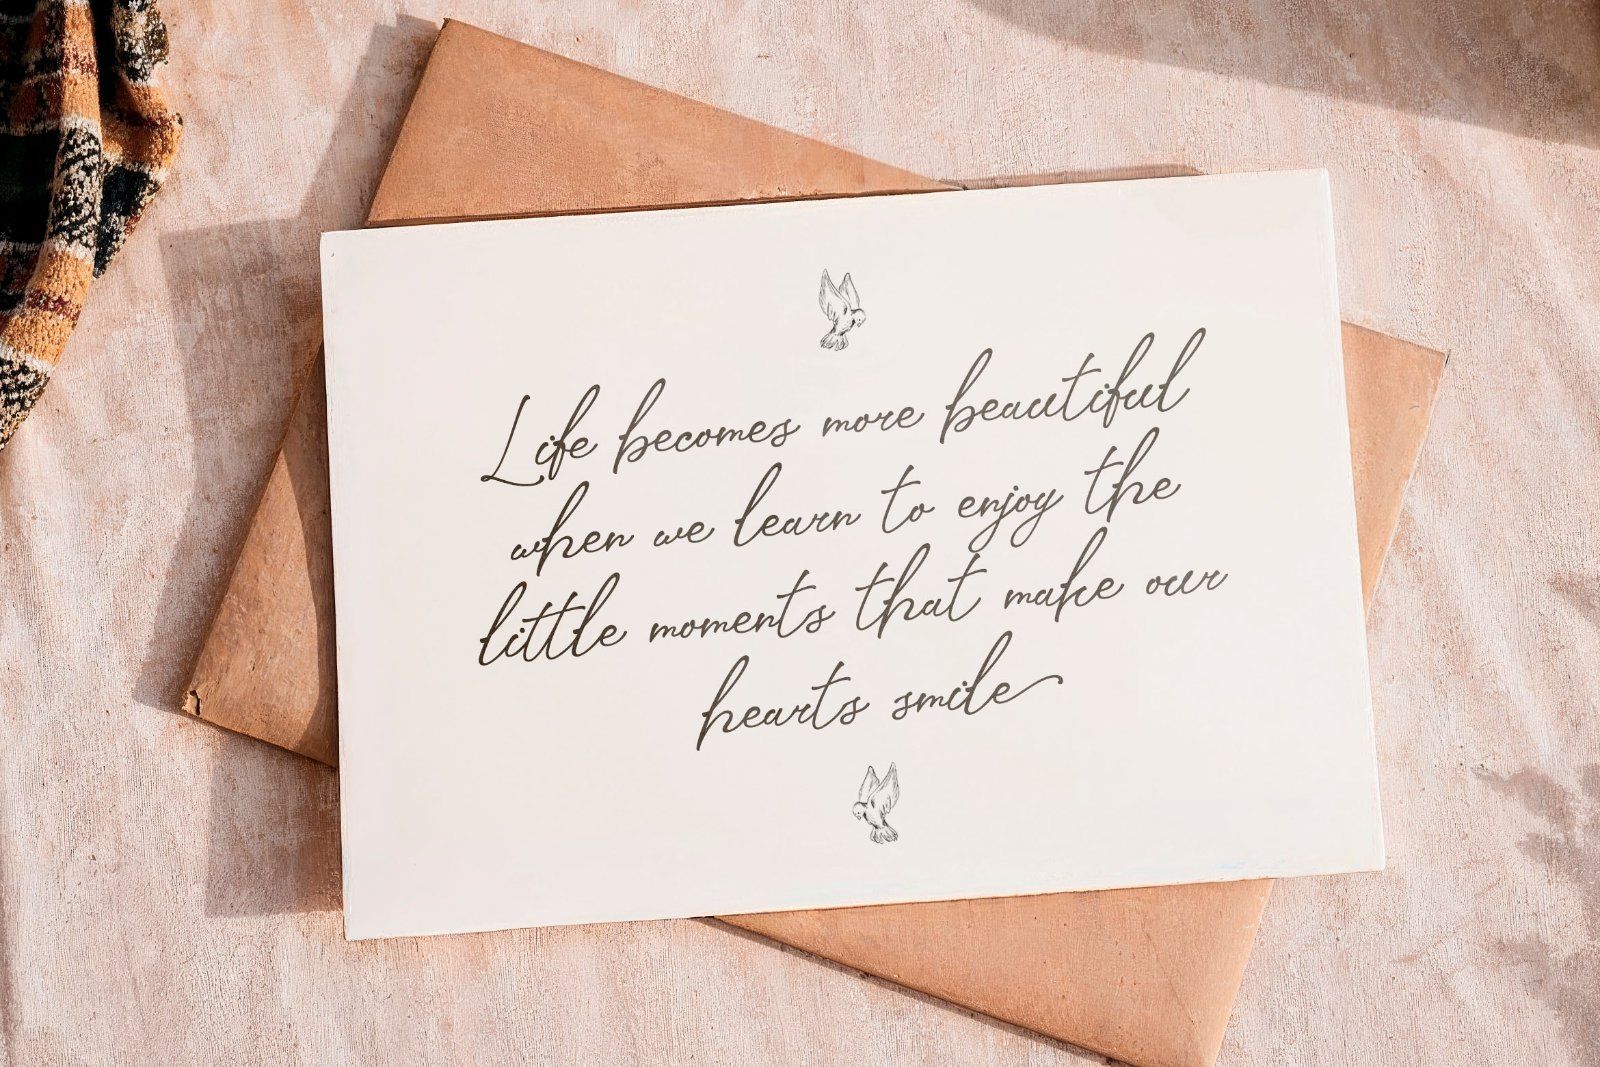 Life becomes more beautiful
when we learn to enjoy the
little moments that make our
hearts smile